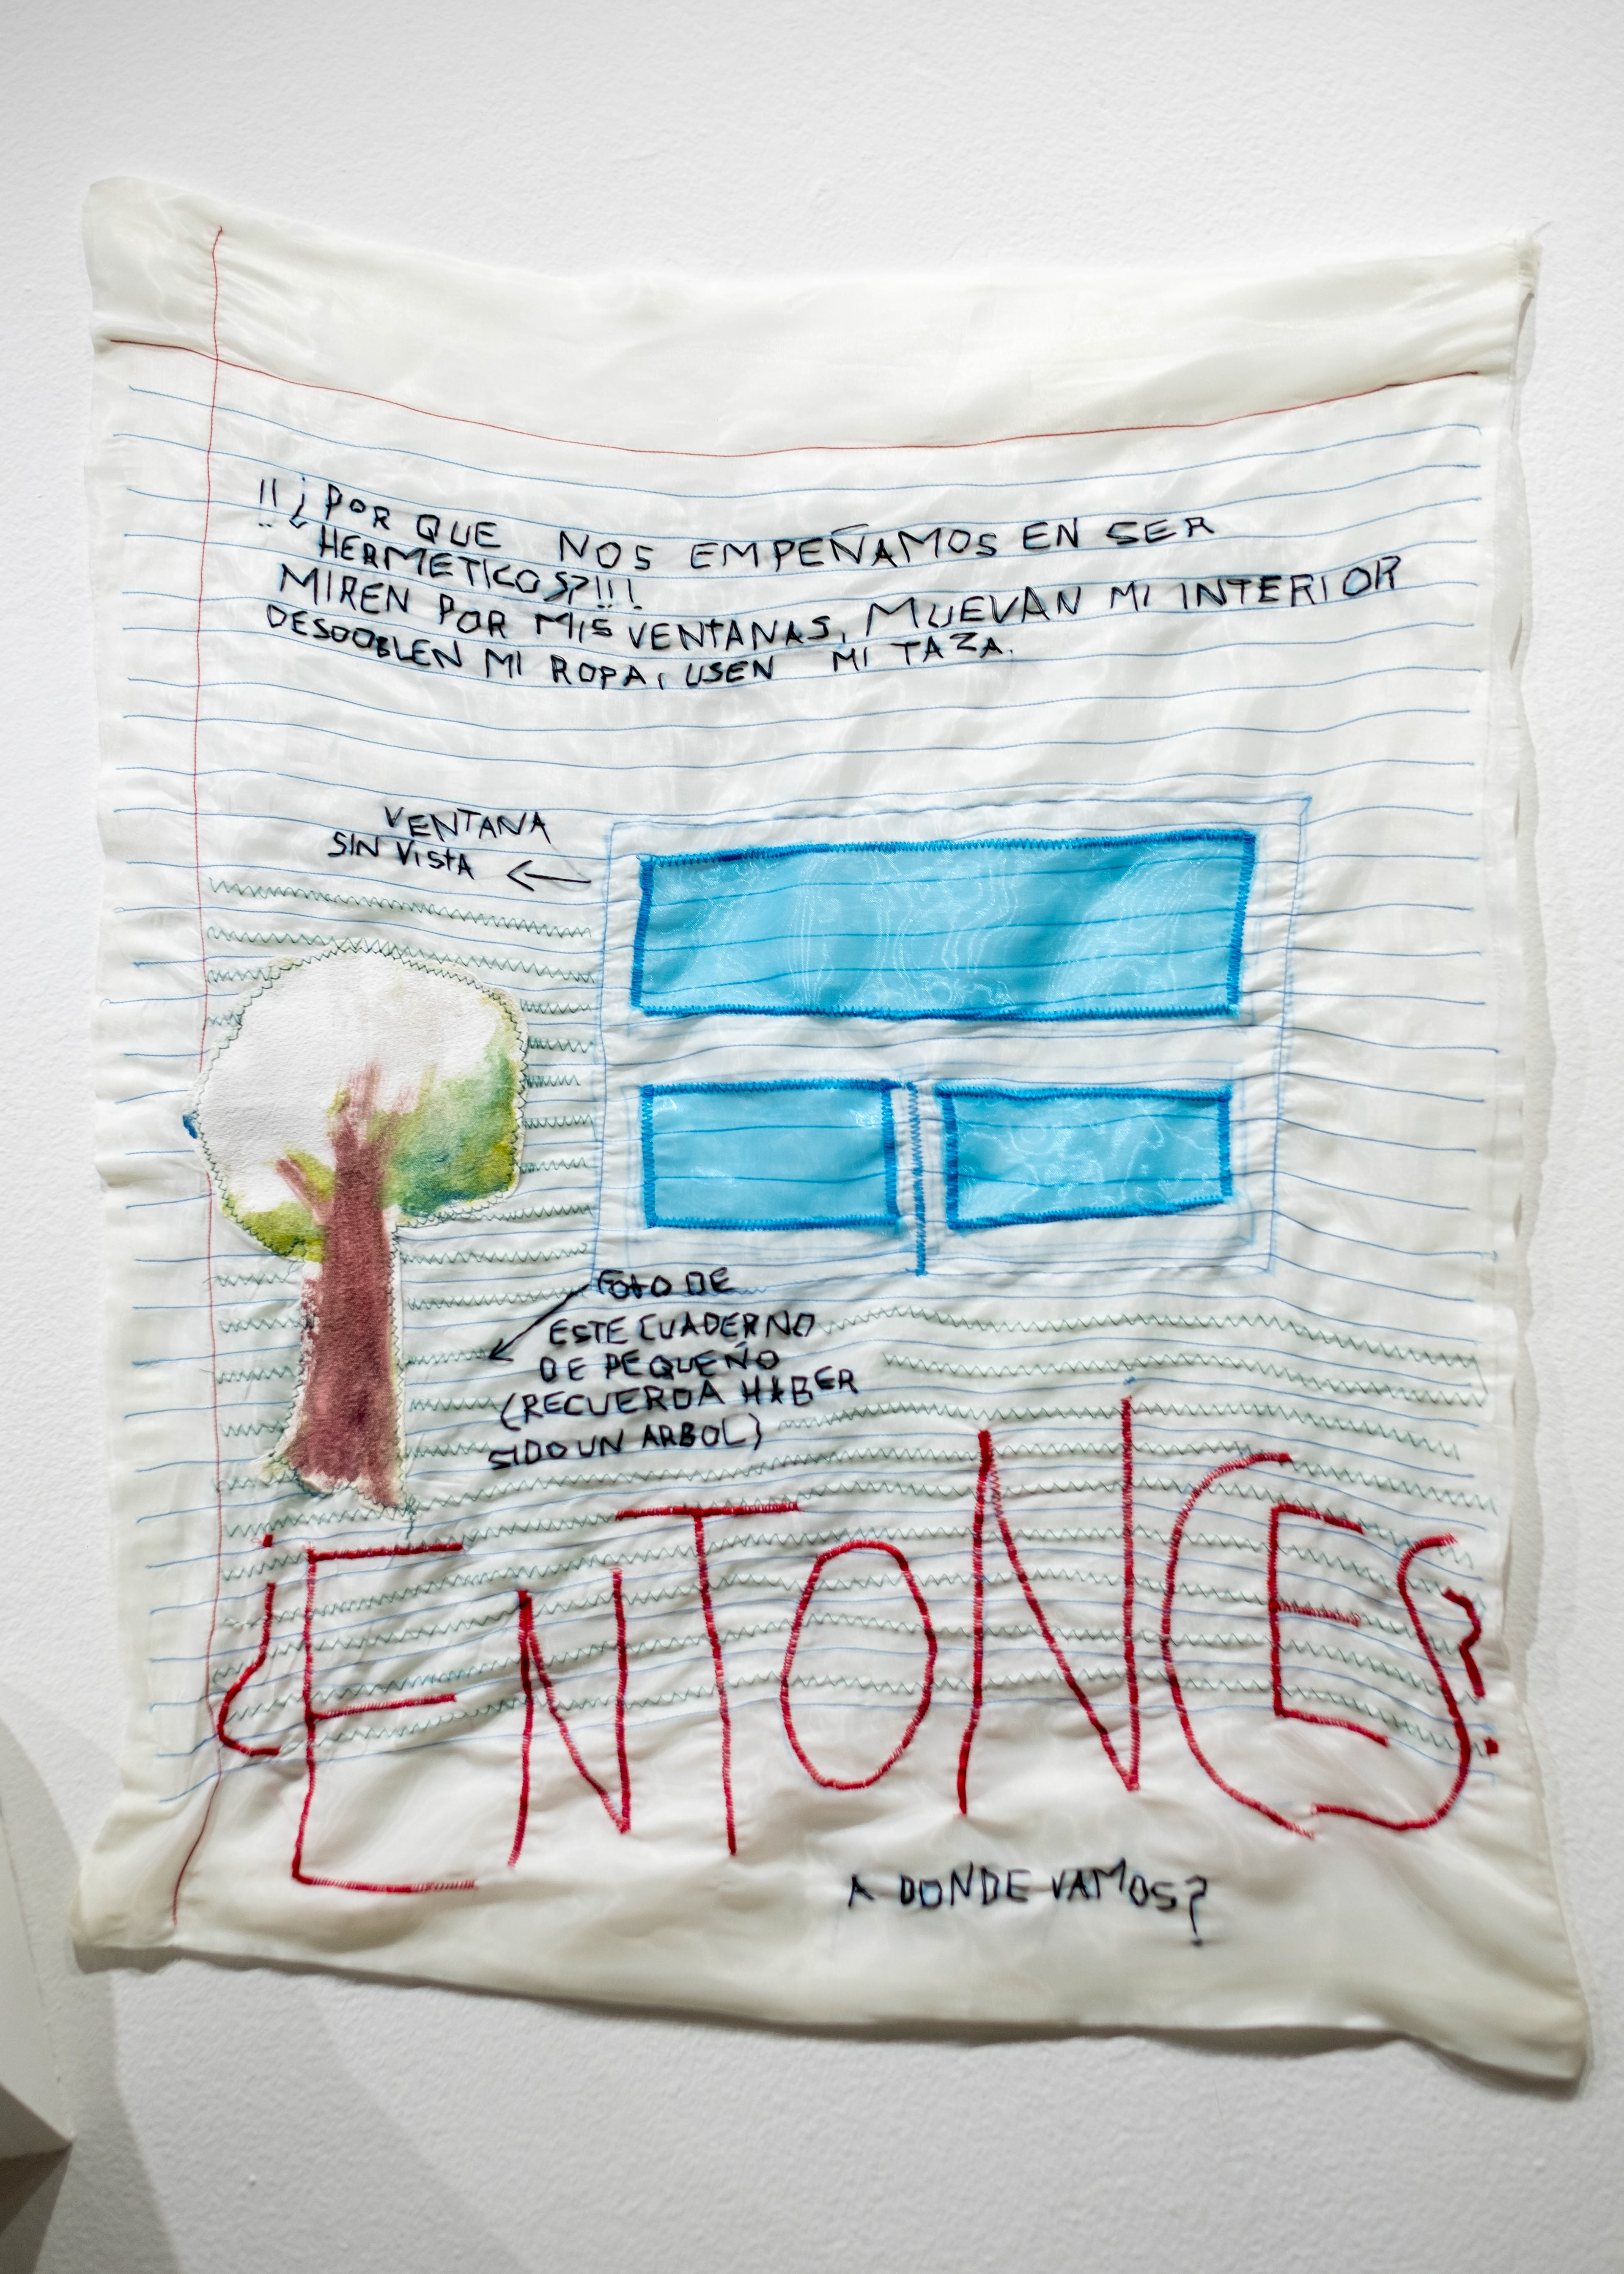 !!¿POR QUE NOS EMPEÑAMOS EN SER
HERMETICOS?!!!
MIREN POR MIS VENTANAS, MUEVAN MI INTERIOR
DESDOBLEN MI ROPA, USEN MI TAZA.
VENTANA
SIN VISTA
FOTO DE
ESTE CUADERNO
DE PEQUEÑO
(RECUERDA HABER
SIDO UN ARBOL)
¿ENTONCES?
A DONDE VAMOS?